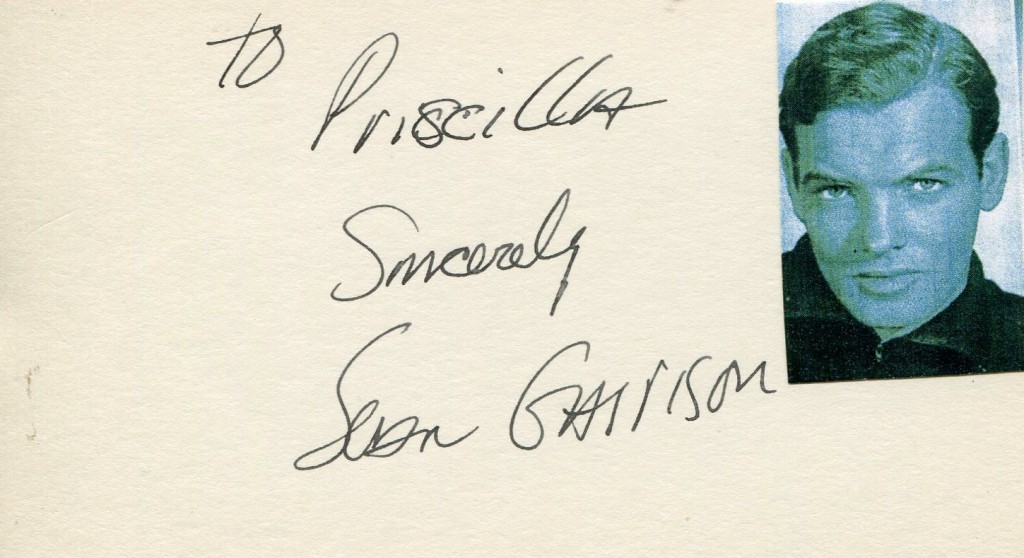 To
Priscilla
Sincerely
Sean Garrison